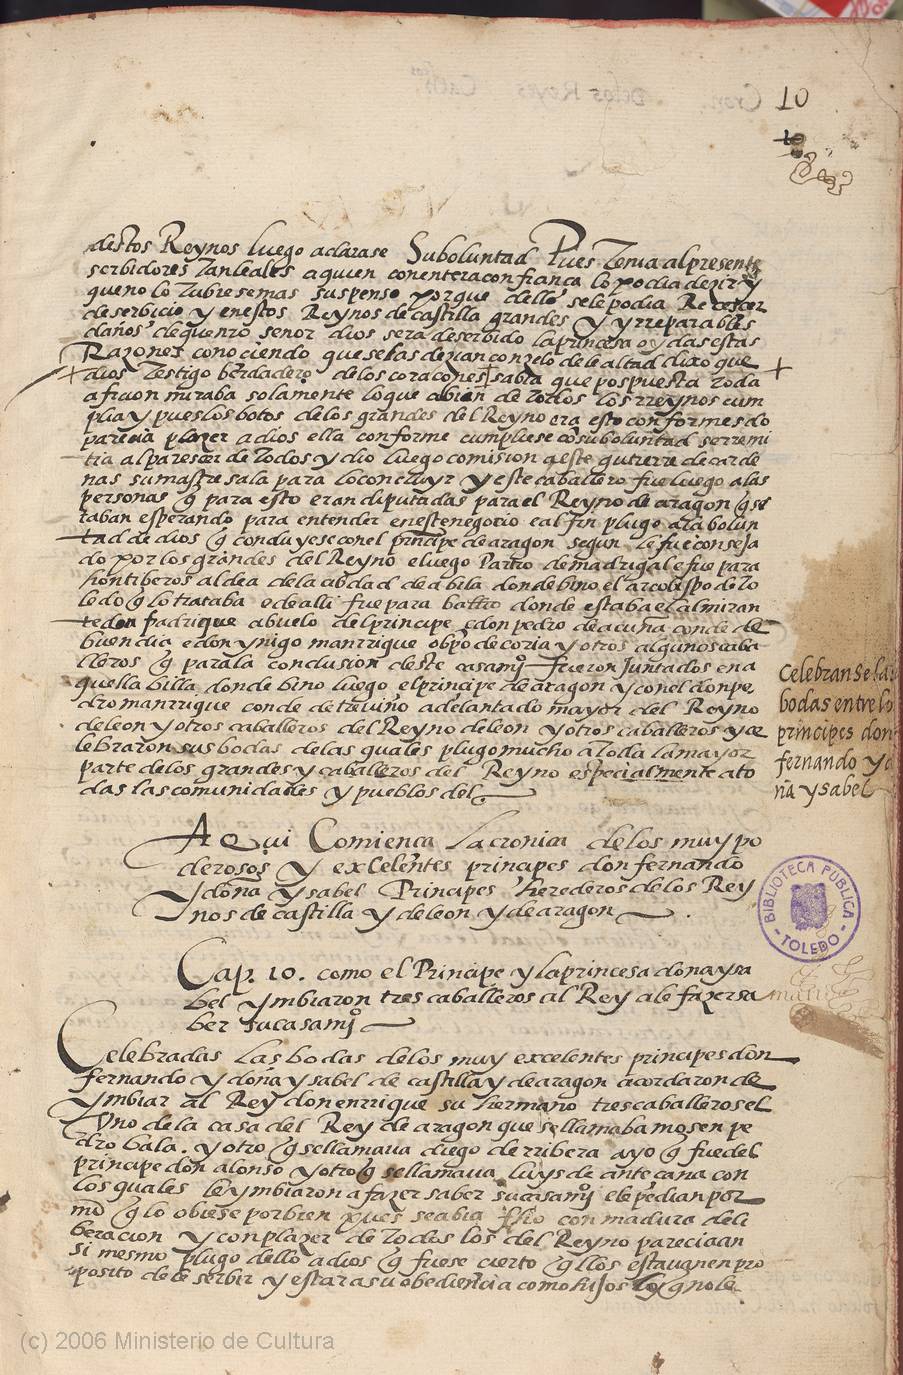 10
10
destos Reynos luego aclarase Suboluntad Pues Tenia alpresente
serbidores Tanleales aquien conenteraconfiança lo podia dezir y
queno lo Tubiesemas suspenso porque dello selepodia Recescer
deserbicio y enestos Reynos de castilla grandes y yrreparables
daños dequenro senor dios sera deserbido laprincesa oydas estas
Razones conociendo queselas dezian conzelo delealtad dixo que
dios Testigo berdadero delos coraçones sabia que pospuesta toda
aficion miraba solamente loque abien de Todos los rreynos cum
plia y pueslos botos delos grandes del Reyno era esto conformesdo
parecia plazer adios ella conforme cumpliese cosuboluntad serremi
tia alparescer de Todos y dio luego comision aeste gutierre decarde
nas sumastre sala para loconcluyr y este caballero fue luego alas
personas q para esto eran diputadas para el Reyno de aragon q es
taban esperando para entender enestenegocio e al fin plugo ala bolun
tad de dios q concluyese con el principe de aragon segun le fue conseja
do por los grandes del Reyno e luego Partio de madrigal e fue para
hontiberos aldea dela abdad de abila donde bino el arcobispo de To
ledo q lo trataba e de alli fue para balltid donde estaba el almiran
te don fadrique abuelo del principe e don pedro de acuña conde de
buendia e don ynigo manrrique obpo de coria y otros algunos caba
lleros q para la conclusion deste casamjo fueron Juntados en a
quella billa donde bino luego el principe de aragon y con el don pe
dro manrrique conde de treuiño adelantado mayor del Reyno
deleon y otros caballeros del Reyno deleon y otros caballeros y çe
lebraron sus bodas delas quales plugo mucho a Toda la mayor
parte delos grandes y caballeros del Reyno especialmente ato
das las comunidades y pueblos del
Celebranse las
bodas entre los
principes don
fernando y do
ña ysabel
Aqui Comienca La cronica delos muy po
derosos y exçelentes principes don fernando
y doña ysabel Principes herederos delos Rey
nos de castilla y deleon y de aragon
BIBLIOTECA PUBLICA
- TOLEDO -
Cap. 10. como el Principe y laprincesa doña ysa
bel ymbiaron tres caballeros al Rey ale fazer sa
ber sucasamjo
Celebradas las bodas delos muy excelentes principes don
fernando y doña ysabel de castilla y de aragon acordaron de
ymbiar al Rey don enrrique su hermano tres caballeros el
Vno de la casa del Rey de aragon que se llamaba mosen pe
dro bala. y otro q se llamaua diego de rribera ayo q fue del
principe don alonso y otro q se llamaua luys de antecana con
los quales le ymbiaron a fazer saber su casamjo e le pedian por
md q lo obiese por bien pues se abia fho con madura deli
beracion y con plazer de Todos los del Reyno pareciaan
si mesmo plugo dello a dios q fuese cierto q llos estauan en pro
posito de le serbir y estar a su obediencia como hijos
(c) 2006 Ministerio de Cultura